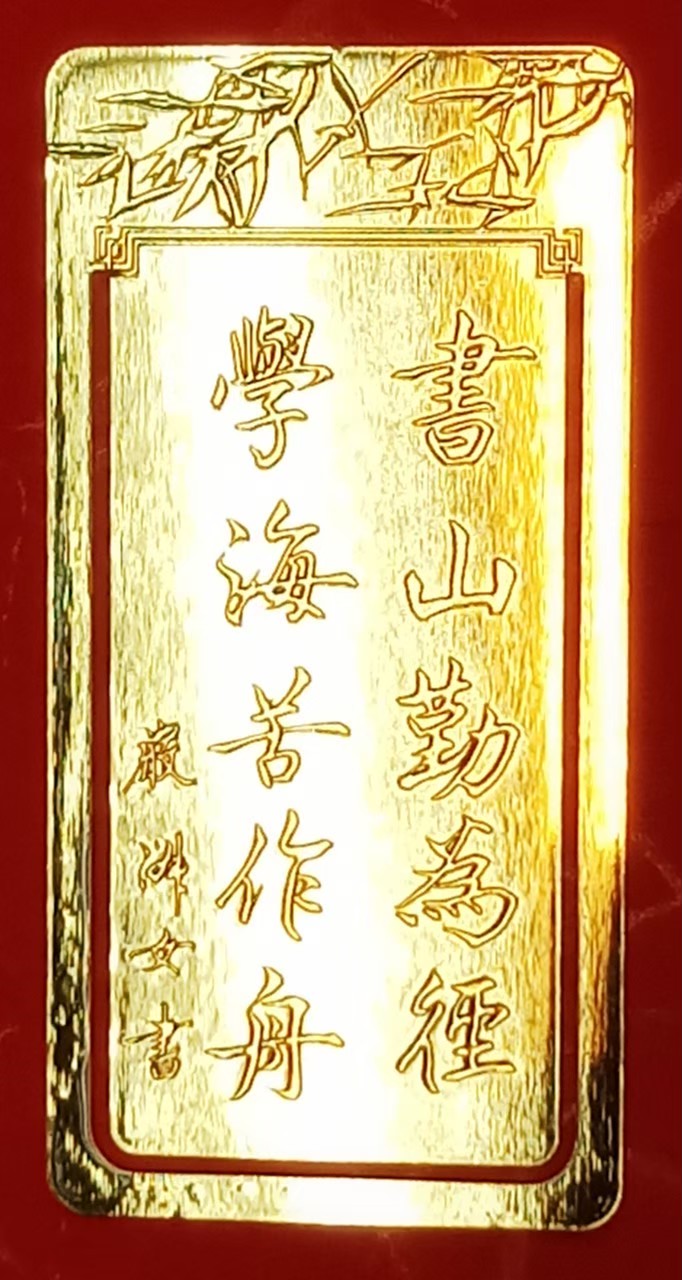 書山勤為徑
學海苦作舟
嚴淑女書